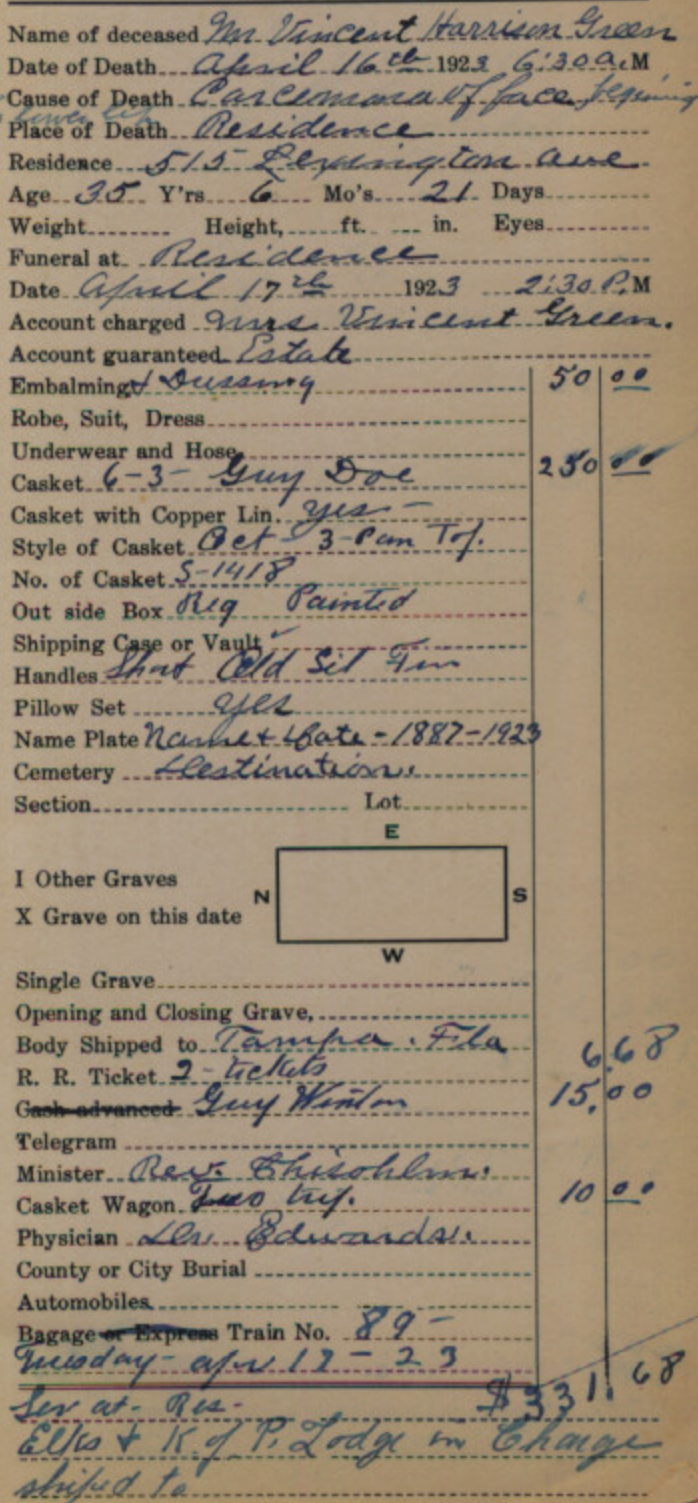 Name of deceased Mr. Vincent Harrison Green
Date of Death April 16th 1923 6:30 a.M
Cause of Death Carcemona of face, begining
lower lip
Place of Death Residence
Residence 515 Lexington ave
Age 35 Y'rs 6 Mo's 21 Days
Weight Height, ft. in. Eyes
Funeral at Residence
Date April 17th 1923 2:30 P.M
Account charged Mrs Vincent Green.
Account guaranteed Estate
Embalming & Dressing 50 00
Robe, Suit, Dress
Underwear and Hose
Casket 6-3- Guy Doe 250 00
Casket with Copper Lin. yes -
Style of Casket Oct - 3-Pan Top.
No. of Casket S-1418
Out side Box Reg Painted
Shipping Case or Vault
Handles Short Old Sil Fin
Pillow Set yes
Name Plate Name & Date - 1887-1923
Cemetery Destination.
Section Lot
E
I Other Graves
N S
X Grave on this date
W
Single Grave
Opening and Closing Grave,
Body Shipped to Tampa. Fla
R. R. Ticket 2 - tickets 6.68
Cash advanced Guy Winton 15.00
Telegram
Minister Rev. Chisohlm.
Casket Wagon Two trip. 10 00
Physician Dr. Edwards.
County or City Burial
Automobiles
Bagage or Express Train No. 89 -
Tuesday - apr 17 - 23
$331.68
Ser at - Res.
Elks & K of P. Lodge in Charge
shiped to